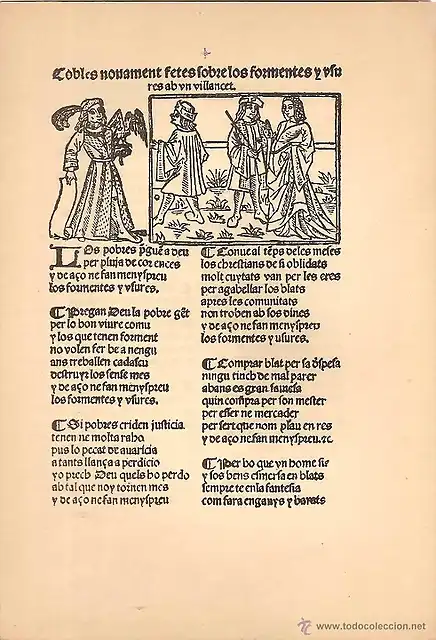 Cobles nouament fetes sobre los formentes y vsu
res ab vn villancet.
LOs pobres p̄guē a deu
per pluja de cor ences
y de aço ne fan menyspreu
los formentes y vsures.
¶ Pregan Deu la pobre gēt
per lo bon viure comu
y los que tenen forment
no volen fer be a nengu
ans treballen cadascu
destruyr los sense mes
y de aço ne fan menyspreu
los formentes y vsures.
¶ Si pobres criden justicia
tenen ne molta raho
pus lo peccat de auaricia
a tants llança a perdicio
yo prech Deu quels bo perdo
ab tal que noy tornen mes
y de aço ne fan menyspreu
¶ Conue al tēps de les meses
los chrestians de si oblidats
molt cuytats van per les eres
per agabellar los blats
apres les comunitats
non troben ab sos dines
y de aço ne fan menyspreu
los formentes y vsures.
¶ Comprar blat per sa d̄spesa
ningu tinch de mal parer
abans es gran
quin compra per son mester
per esser ne mercader
per sert que nom plau en res
y de aço ne fan menyspreu.⁊c.
¶ Per bo que vn home sie
y los bens esmersa en blats
sempre te en la fantesia
com fara enganys y barats
www.todocoleccion.net